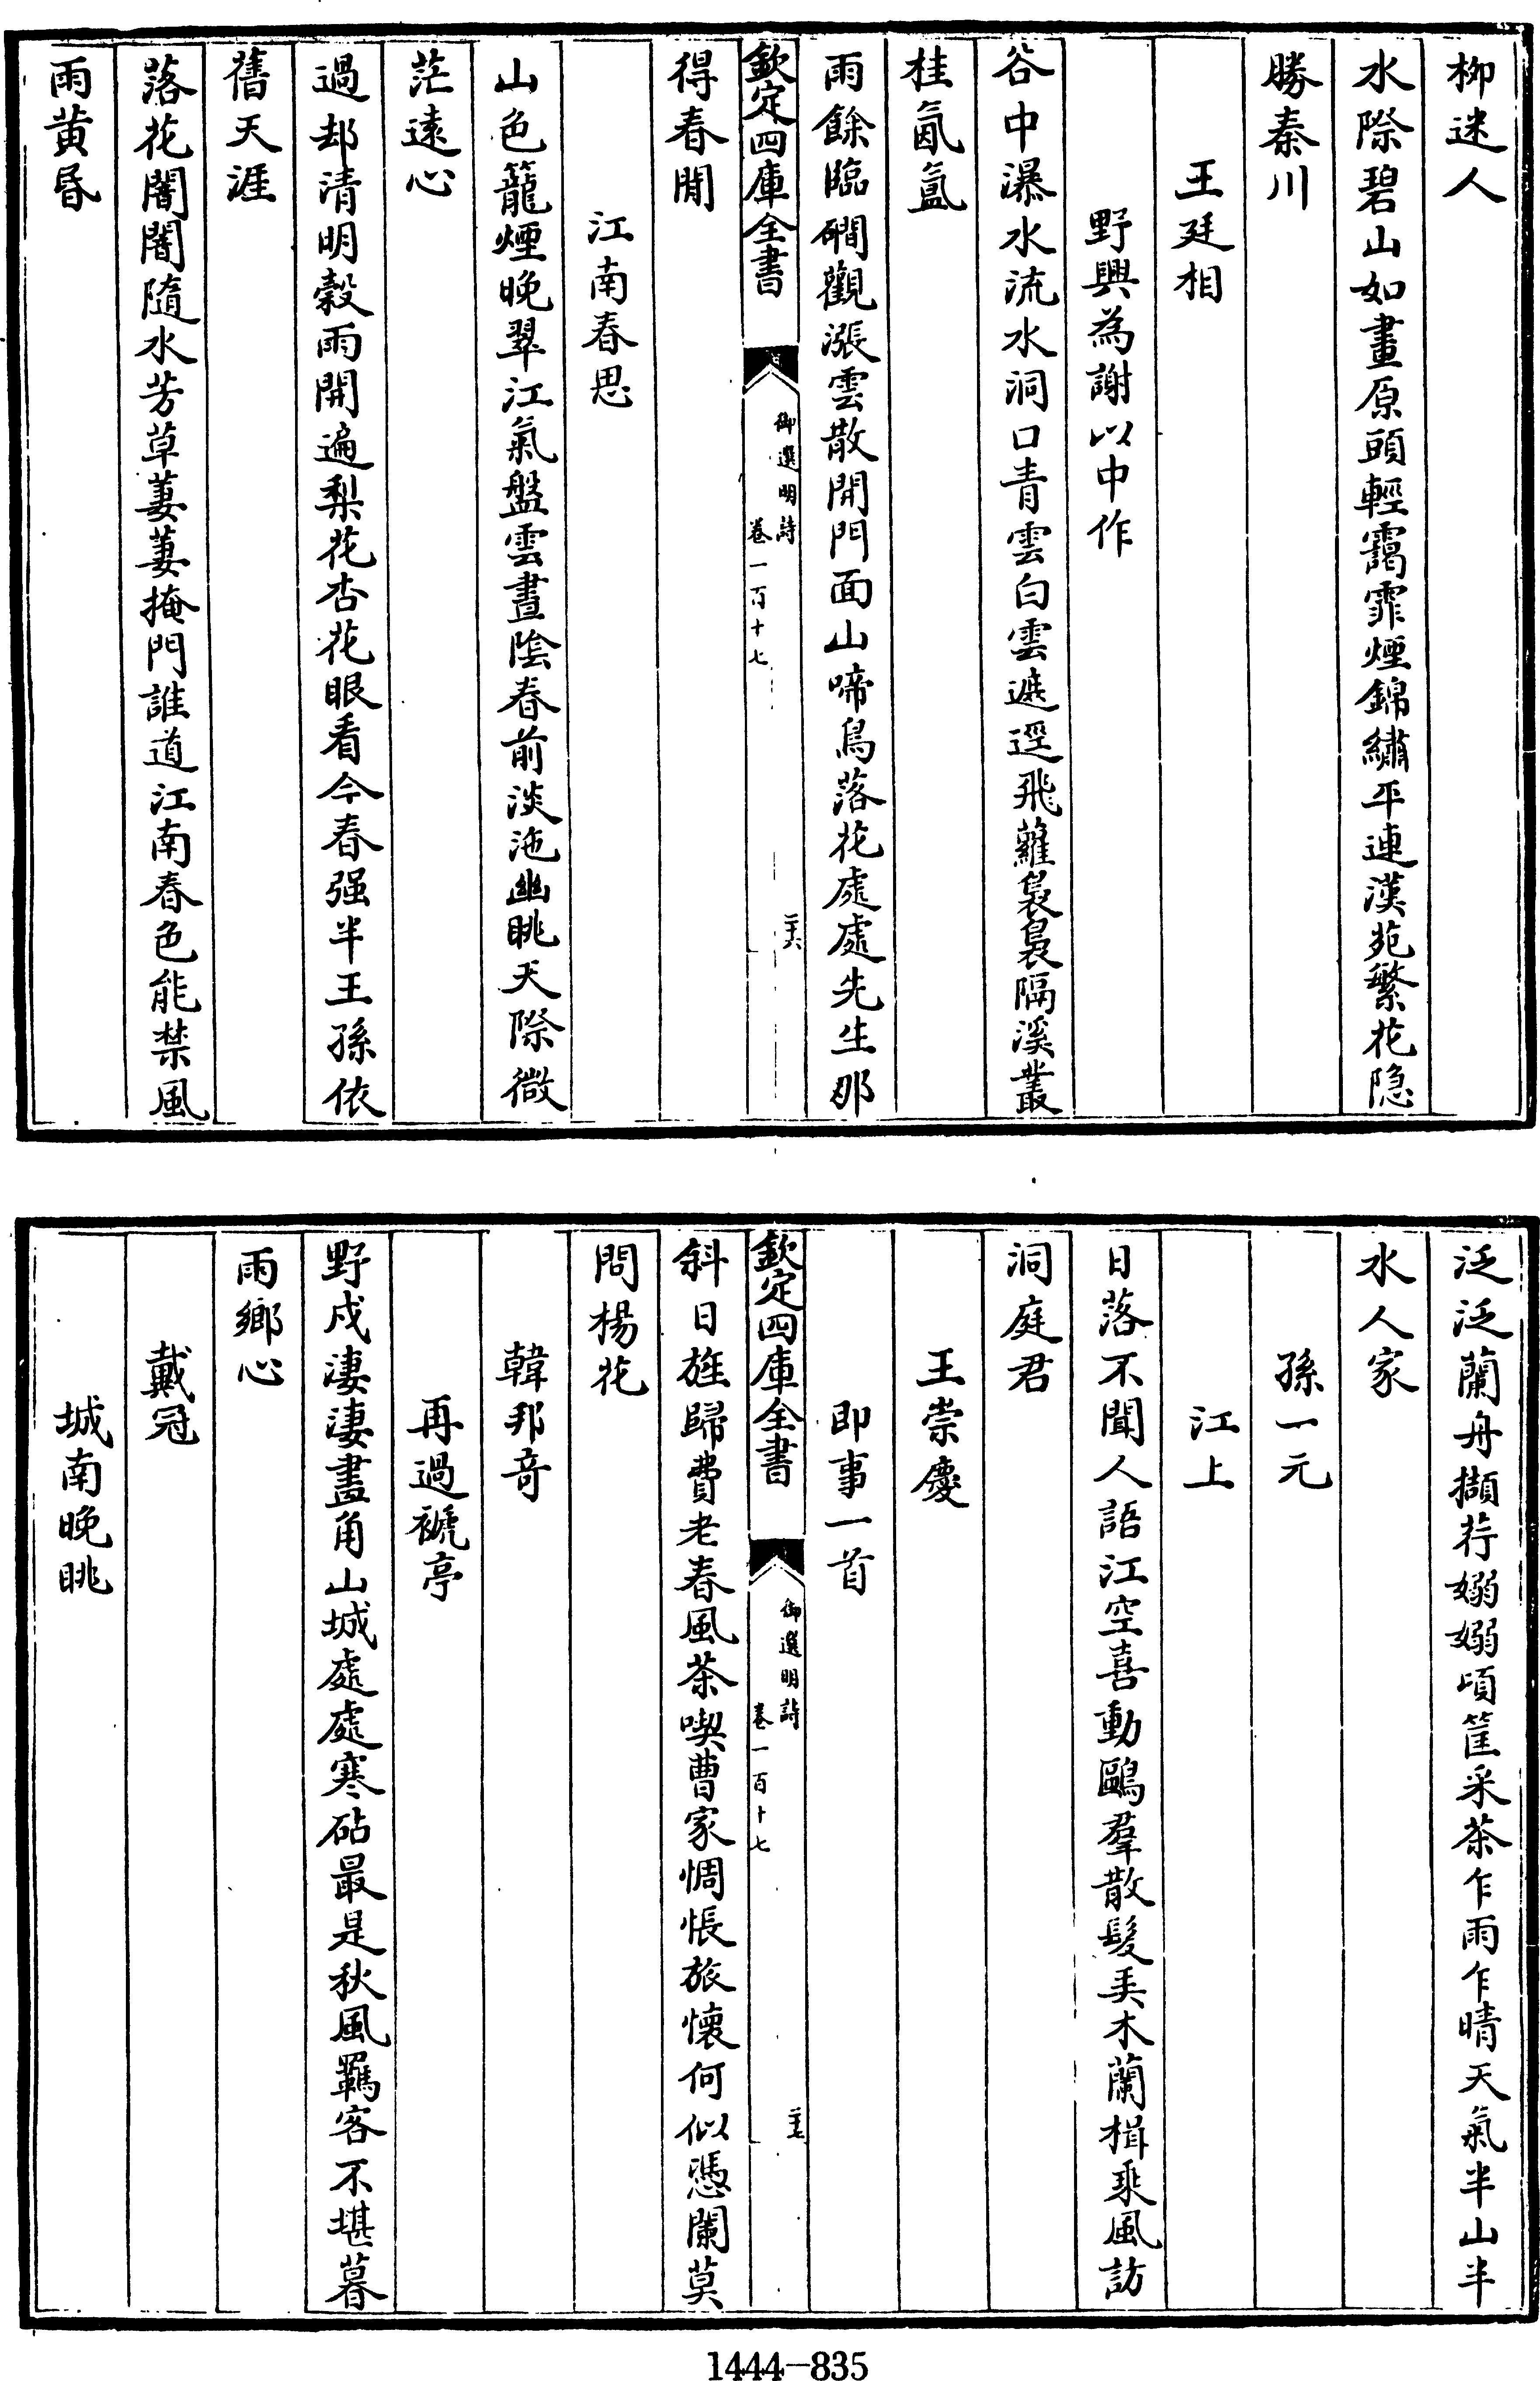 柳迷人
水際碧山如畫原頭輕靄霏煙錦繡平連漢苑繁花隐
勝秦川
王廷相
野興為謝以中作
谷中瀑水流水洞口青雲白雲遮逕飛蘿裊裊隔溪叢
桂氤氲
雨餘臨磵觀漲雲散開門面山啼鳥落花處處先生那
欽定四庫全書
御選明詩
卷一百十七
二十六
得春閒
江南春思
山色籠煙晚翠江氣盤雲晝陰春前淡沲幽眺天際微
茫遠心
過却清明穀雨開遍梨花杏花眼看今春强半王孫依
舊天涯
落花闇闇隨水芳草萋萋掩門誰道江南春色能禁風
雨黄昏
泛泛蘭舟擷荇嫋嫋頃筐采茶乍雨乍晴天氣半山半
水人家
孫一元
江上
日落不聞人語江空喜動鷗羣散髮美木蘭楫乘風訪
洞庭君
王崇慶
即事一首
欽定四庫全書
御選明詩
卷一百十七
二十七
斜日旌歸費老春風茶喫曹家惆悵旅懷何似憑闌莫
問楊花
韓邦奇
再過褫亭
野戍淒淒畫角山城處處寒砧最是秋風羈客不堪暮
雨鄉心
戴冠
城南晚眺
1444-835